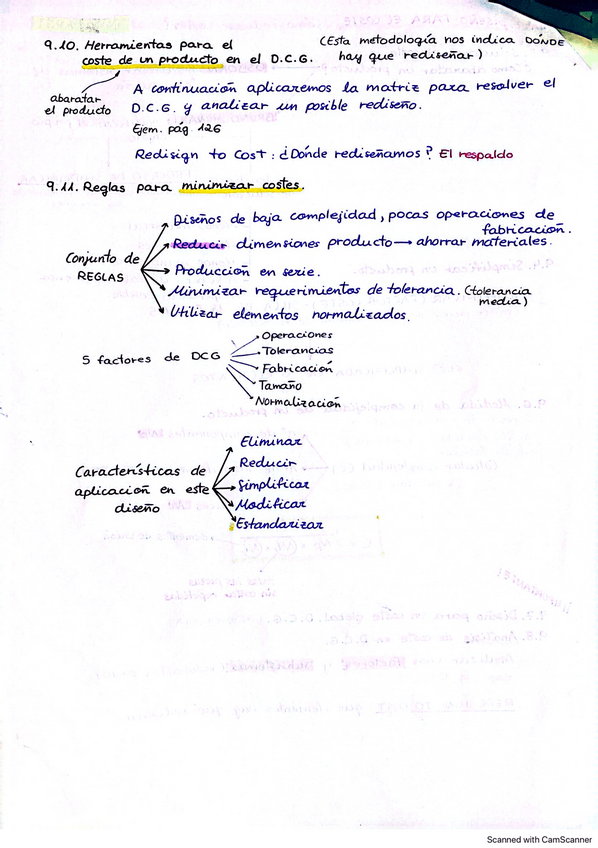 9.10. Herramientas para el
coste de un producto en el D.C.G.
(Esta metodología nos indica DÓNDE
hay que rediseñar)
abaratar
el producto
A continuación aplicaremos la matriz para resolver el
D.C.G. y analizar un posible rediseño.
Ejem. pág 126
Redisign to Cost: ¿Dónde rediseñamos? El respaldo
9.11. Reglas para minimizar costes.
Conjunto de
REGLAS
Diseños de baja complejidad, pocas operaciones de
fabricación.
Reducir dimensiones producto → ahorrar materiales.
Producción en serie.
Minimizar requerimientos de tolerancia. (tolerancia
media)
Utilizar elementos normalizados.
5 factores de DCG
Operaciones
Tolerancias
Fabricación
Tamaño
Normalización
Características de
aplicación en este
diseño
Eliminar
Reducir
Simplificar
Modificar
Estandarizar
Scanned with CamScanner